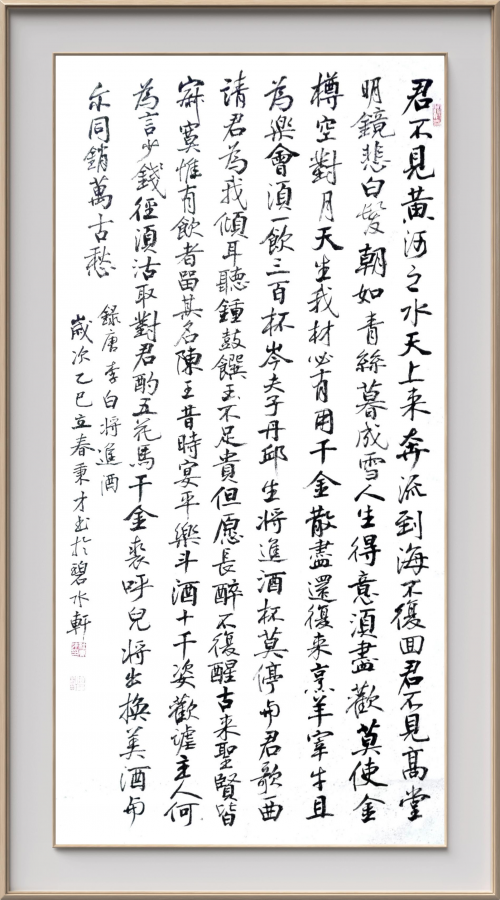 君不見黃河之水天上来奔流到海不復回君不見高堂
明鏡悲白髮朝如青絲暮成雪人生得意須盡歡莫使金
樽空對月天生我材必有用千金散盡還復来烹羊宰牛且
為樂會須一飲三百杯岑夫子丹邱生將進酒杯莫停与君歌一曲
請君為我傾耳聽鍾鼓饌玉不足貴但愿長醉不復醒古来聖賢皆
寂寞惟有飲者留其名陳王昔時宴平樂斗酒十千恣歡謔主人何
為言少錢徑須沽取對君酌五花馬千金裘呼兒將出換美酒与
尔同銷萬古愁
錄唐李白將進酒
歲次乙巳立春秉才书於碧水軒